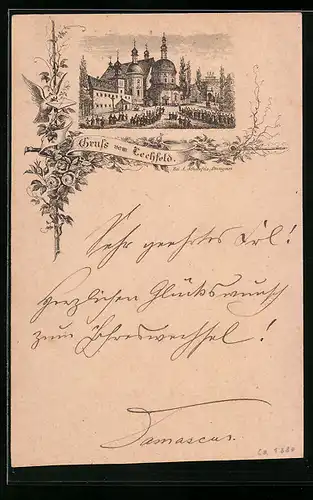 Gruß vom Lechfeld.
Sehr geehrtes Frl!
Herzlichen Glückswunsch
zum Jahreswechsel!
Damascus.
Ca 1880